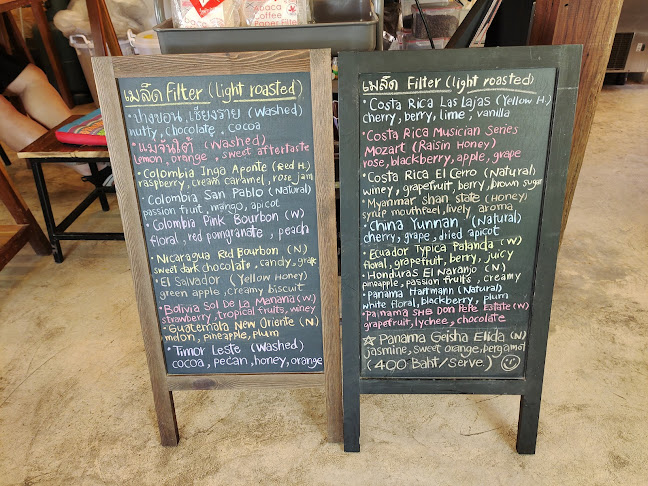 Abaca
Coffee
Paper Filter
เมล็ด Filter (light roasted)
• ปางขอน, เชียงราย (Washed)
nutty, chocolate, cocoa
• แม่จันใต้ (Washed)
lemon, orange, sweet aftertaste
• Colombia Inga Aponte (Red H.)
raspberry, cream caramel, rose jam
• Colombia San Pablo (Natural)
passion fruit, mango, apicot
• Colombia Pink Bourbon (W)
floral, red pomgranate, peach
• Nicaragua Red Bourbon (N)
sweet dark chocolate, candy, grape
• El Salvador (Yellow Honey)
green apple, creamy biscuit
• Bolivia Sol De La Manana (W)
strawberry, tropical fruits, winey
• Guatemala New Oriente (N)
melon, pineapple, plum
• Timor Leste (Washed)
cocoa, pecan, honey, orange
เมล็ด Filter (light roasted)
• Costa Rica Las Lajas (Yellow H.)
cherry, berry, lime, vanilla
• Costa Rica Musician Series
Mozart (Raisin Honey)
rose, blackberry, apple, grape
• Costa Rica El Cerro (Natural)
winey, grapefruit, berry, brown sugar
• Myanmar Shan State (Honey)
syrup mouthfeel, lively aroma
• China Yunnan (Natural)
cherry, grape, dried apicot
• Ecuador Typica Palanda (W)
floral, grapefruit, berry, juicy
• Honduras El Naranjo (N)
pineapple, passion fruits, creamy
• Panama Hartmann (Natural)
white floral, blackberry, plum
• Panama SHB Don Pepe Estate (W)
grapefruit, lychee, chocolate
☆ Panama Geisha Elida (N)
jasmine, sweet orange, bergamot
(400 Baht/Serve)